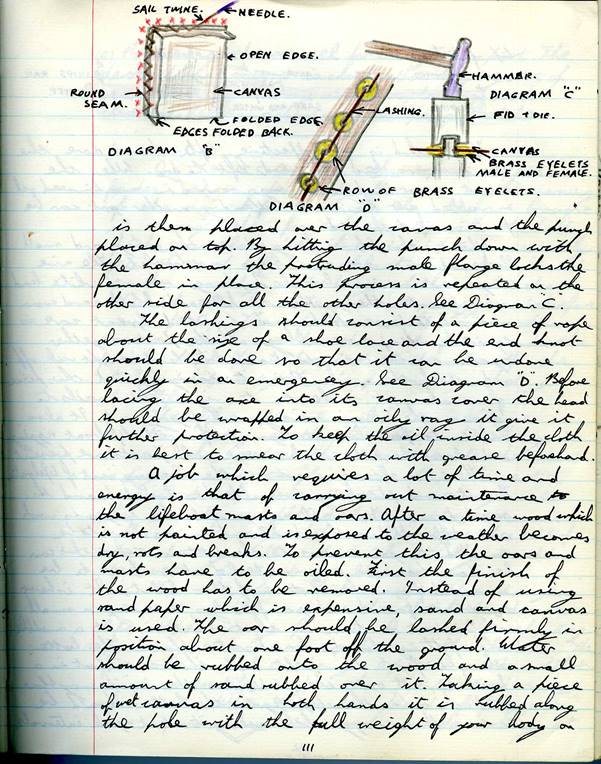 SAIL TWINE.
NEEDLE.
OPEN EDGE.
CANVAS
ROUND SEAM.
FOLDED EDGE
EDGES FOLDED BACK.
DIAGRAM "B"
LASHING.
ROW OF BRASS EYELETS.
DIAGRAM "D"
HAMMER.
DIAGRAM "C"
FID & DIE.
CANVAS
BRASS EYELETS
MALE AND FEMALE.
is then placed over the canvas and the punch
placed on top. By hitting the punch down with
the hammar the protruding male flange locks the
female in place. This process is repeated on the
other side for all the other holes. See Diagram "C".
The lashings should consist of a piece of rope
about the size of a shoe lace and the end knot
should be done so that it can be undone
quickly in an emergency. See Diagram "D". Before
lacing the axe into its canvas cover the head
should be wrapped in an oily rag it give it
further protection. To keep the oil inside the cloth
it is best to smear the cloth with grease beforehand.
A job which requires a lot of time and
energy is that of carrying out maintenance to
the lifeboat masts and oars. After a time wood which
is not painted and is exposed to the weather becomes
dry, rots and breaks. To prevent this the oars and
masts have to be oiled. First the finish of
the wood has to be removed. Instead of using
sand paper which is expensive, sand and canvas
is used. The oar should be lashed firmly in
position about one foot off the ground. Water
should be rubbed onto the wood and a small
amount of sand rubbed over it. Taking a piece
of wet canvas in both hands it is rubbed along
the pole with the full weight of your body on
111